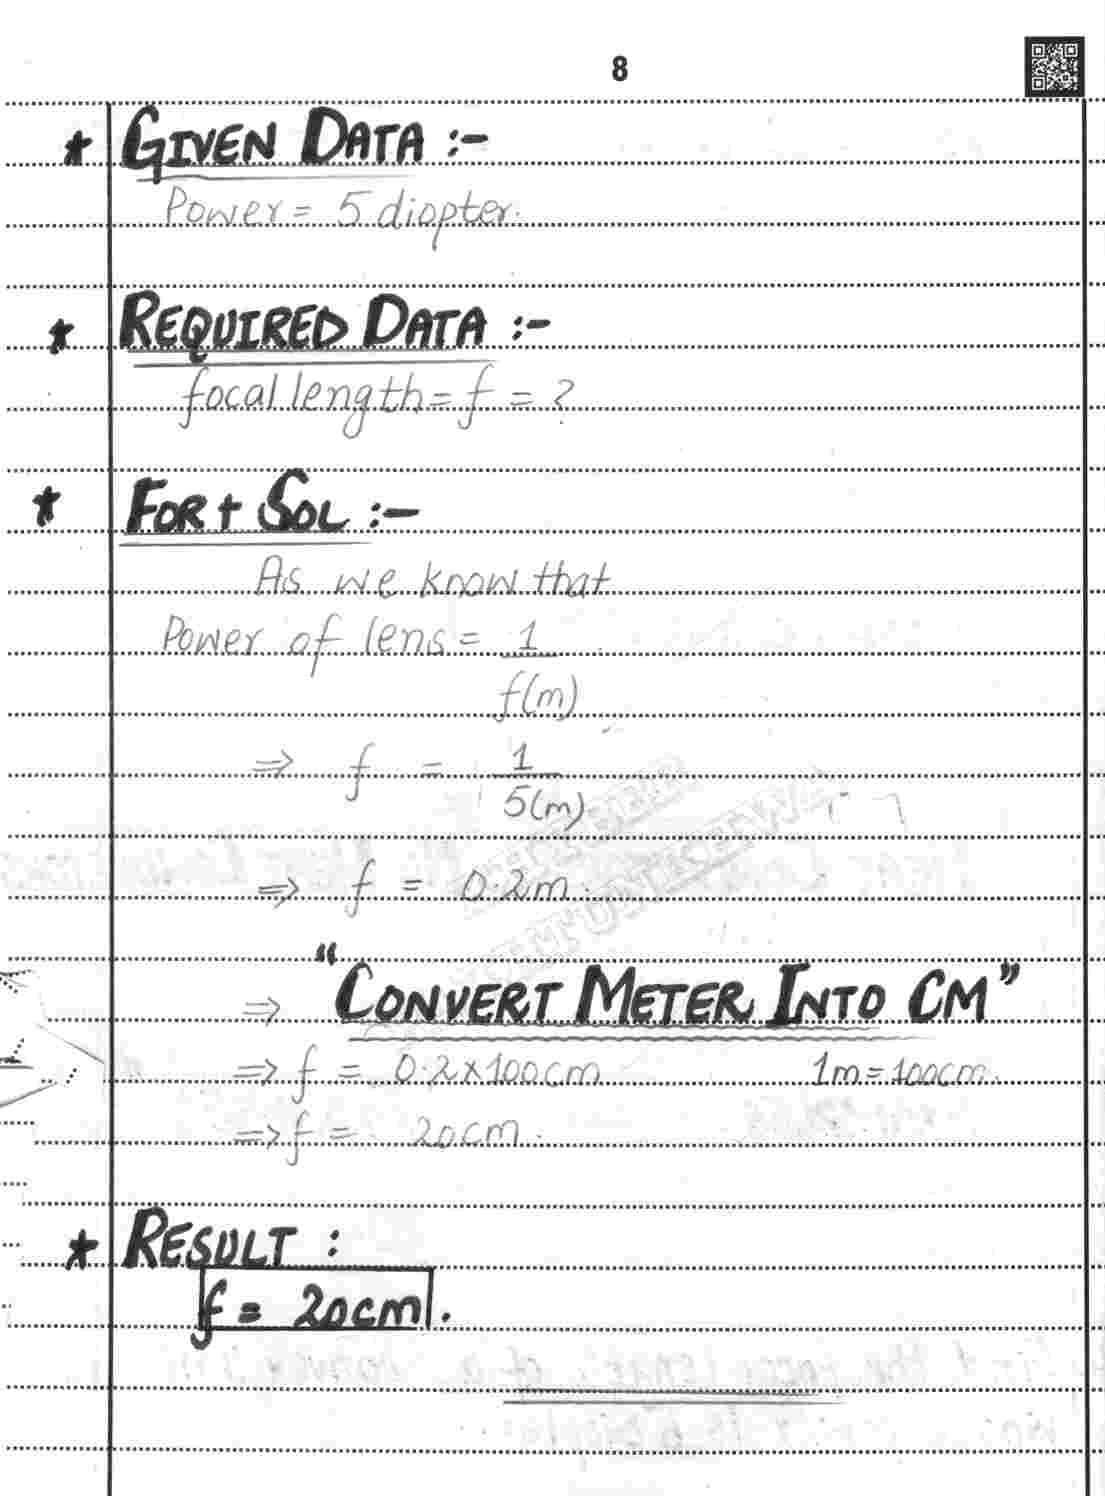 8
* GIVEN DATA :-
Power = 5 diopter.
* REQUIRED DATA :-
focal length = f = ?
* FOR + SOL :-
As we know that
Power of lens = 1
f(m)
⇒ f = 1
5(m)
⇒ f = 0.2m.
⇒ "CONVERT METER INTO CM"
⇒ f = 0.2x100cm 1m = 100cm.
⇒ f = 20cm.
* RESULT :
f = 20cm.